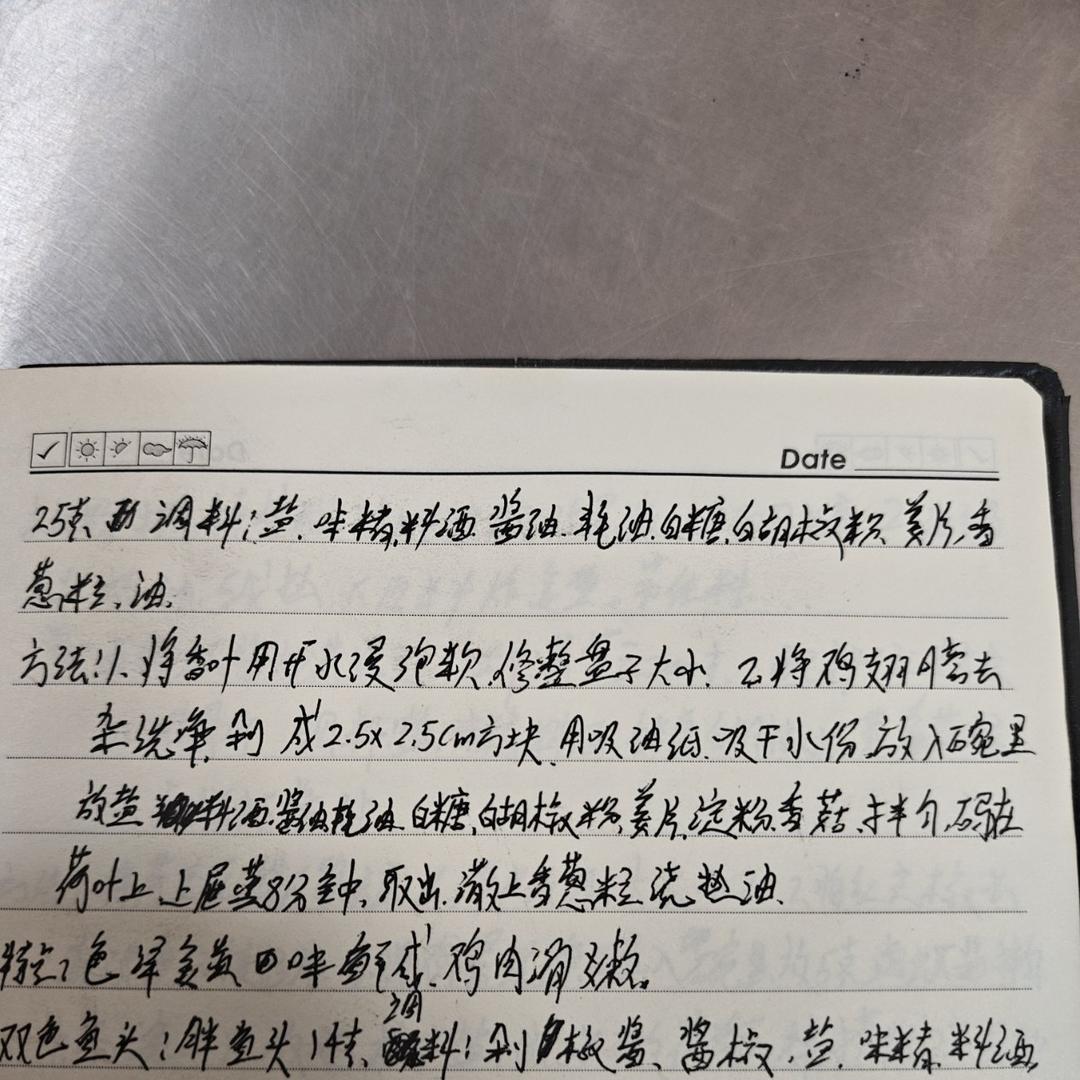 Date
25克 调料:盐.味精.料酒.酱油.耗油.白糖.白胡椒粉.姜片.香
葱粒、油.
方法:1.将香叶用开水浸泡软.修整盘子大小. 2.将鸡翅膀去
杂洗净.剁成2.5x2.5cm方块.用吸油纸.吸干水份.放入碗里
放盐 料酒.酱油.耗油.白糖.白胡椒粉.姜片.淀粉.香菇.拌匀.码在
荷叶上.上屉蒸8分钟.取出.撒上香葱粒.浇热油.
特点:色泽美 口味鲜咸.鸡肉滑嫩。
双色鱼头:胖鱼头1个. 调料:剁椒酱、酱椒.盐.味精.料酒.